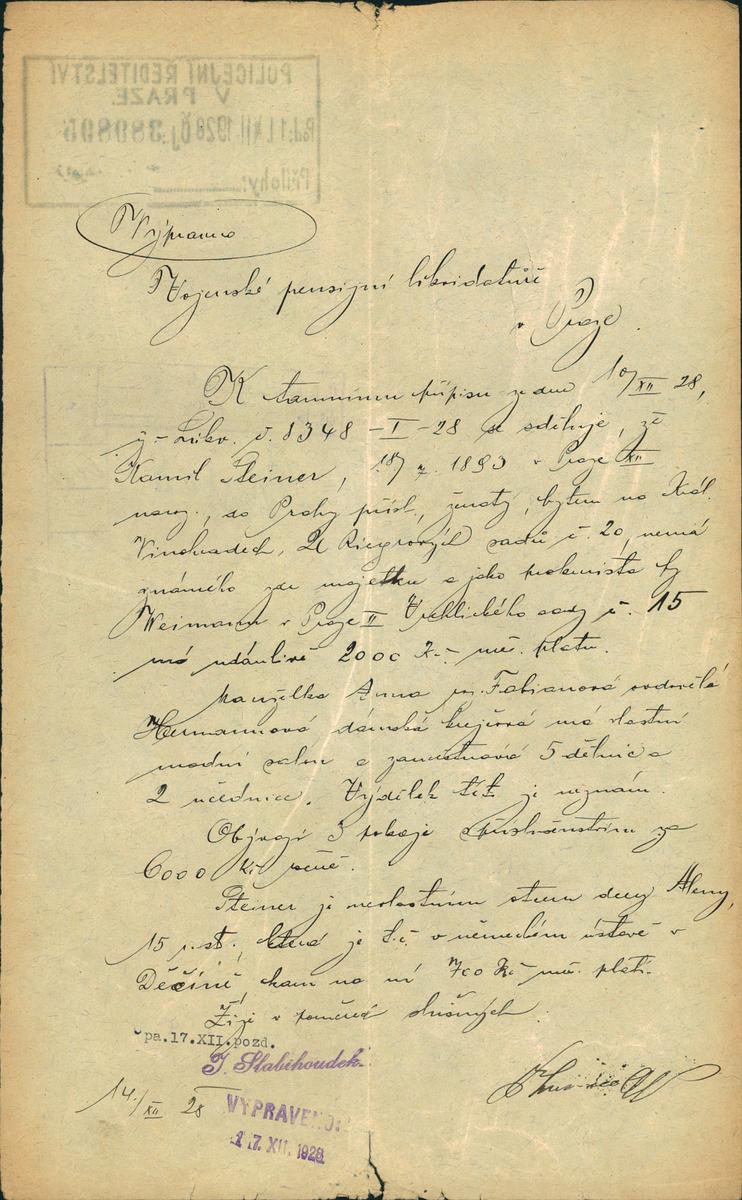 POLICEJNÍ ŘEDITELSTVÍ
V PRAZE.
Pod: 11. XII 1928 Čj 389805
Přílohy:
Výpravno
Vojenské pensijní likvidatuře
v Praze.
K tamnímu přípisu ze dne 10/XII 28,
č. 8348-I-28 se sděluje, že
Kamil Steiner, 1893 v Praze XII
naroz., do Prahy přísl., ženatý, bytem na Král.
Vinohradech, U Riegrových sadů č. 20, nemá
známého zde majetku a jako prokurista fy
Weimann v Praze II Vrchlického sady č. 15
má udánlivě 2000 Kč měs. platu.
Manželka Anna roz. Fabianová ovdovělá
Hermannová dámská krejčová má vlastní
modní salon a zaměstnává 5 dělnic a
2 učednice. Výdělek též. je neznám.
Obývají 3 pokoje s příslušenstvím za
6000 Kč ročně.
Steiner je nevlastním otcem dcery
15 r. st., která je t.č. v německém ústavě v
Děčíně, kam na ní 700 Kč měs. platí.
Žije v poměrech slušných.
pa.17.XII.pozd.
J. Slabihoudek.
14./XII 28
VYPRAVENO:
17. XII. 1928